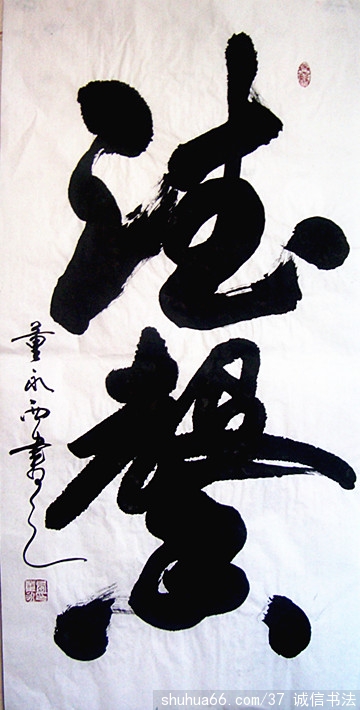 德馨
董永西書之
shuhua66.com/37 诚信书法